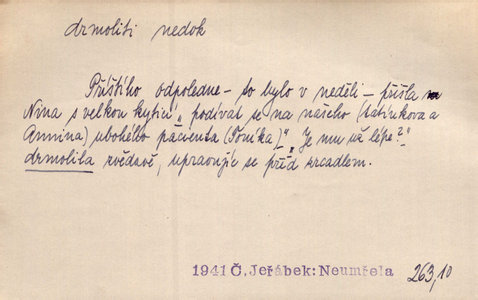 drmoliti nedok
Příštího odpoledne – to bylo v neděli – přišla
Nina s velkou kyticí „podívat se na našeho (tatínkova a
Annina) ubohého pacienta (Toníka)“ „Je mu už lépe?“
drmolila zvědavě, upravujíc se před zrcadlem.
1941 Č. Jeřábek: Neumřela 263,10